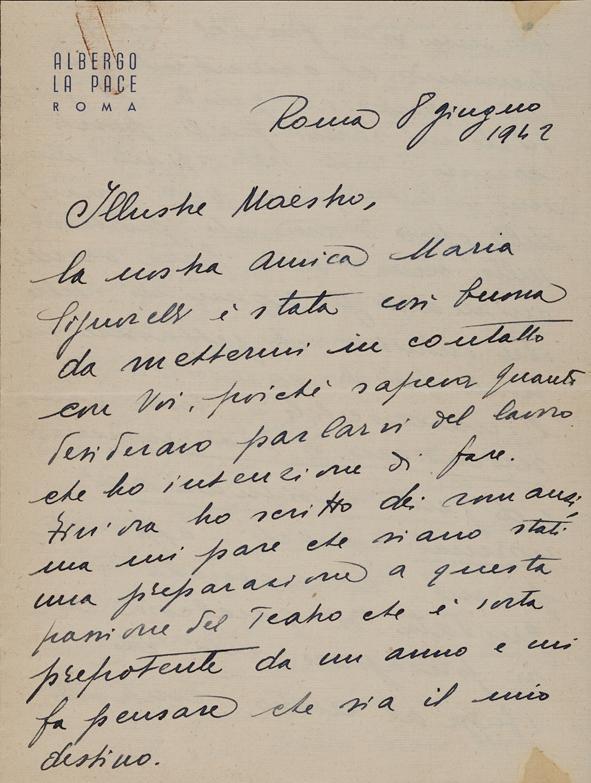 ALBERGO
LA PACE
ROMA
Roma 8 giugno
1942
Illustre Maestro,
la nostra amica Maria
Signorelli è stata così buona
da mettermi in contatto
con Voi, poichè sapeva quanto
desideravo parlarvi del lavoro
che ho intenzione di fare.
Fin'ora ho scritto dei romanzi,
ma mi pare che siano stati
una preparazione a questa
passione del Teatro che è sorta
prepotente da un anno e mi
fa pensare che sia il mio
destino.